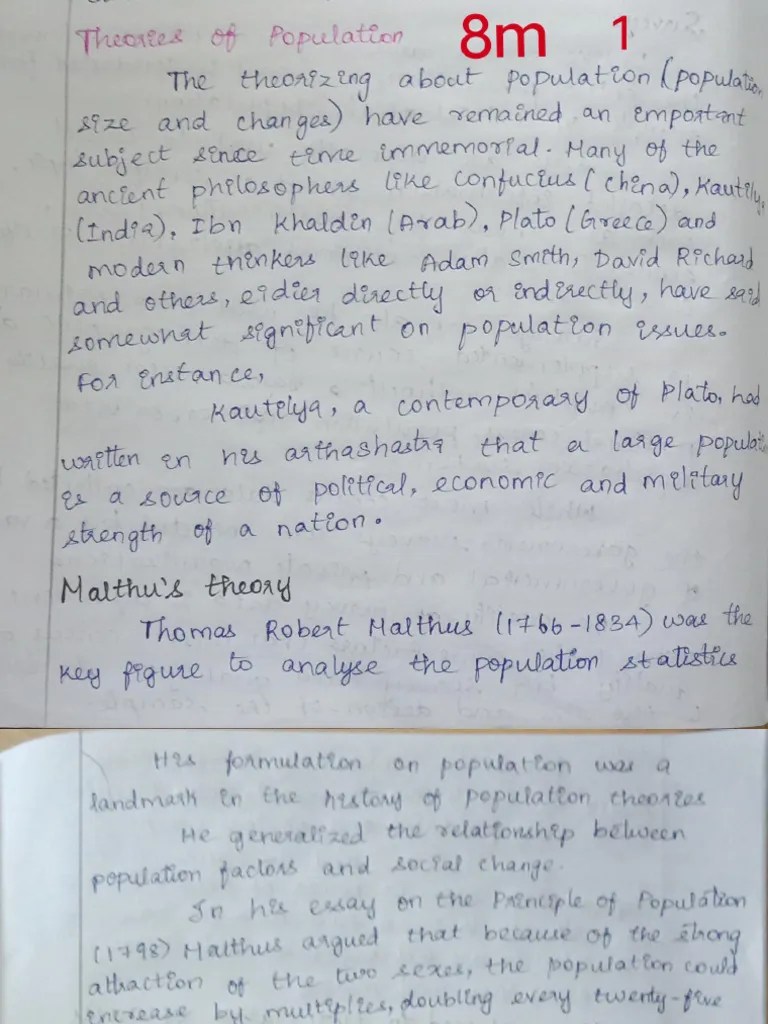 Theories of Population 8m 1
The theorizing about population (population
size and changes) have remained an important
subject since time immemorial. Many of the
ancient philosophers like Confucius (China), Kautily
(India), Ibn Khaldin (Arab), Plato (Greece) and
modern thinkers like Adam Smith, David Richard
and others, eidier directly or indirectly, have said
somewhat significant on population issues.
For instance,
Kautilya, a contemporary of Plato, had
written in his arthashastra that a large populati
is a source of political, economic and military
strength of a nation.
Malthu's theory
Thomas Robert Malthus (1766-1834) was the
key figure to analyse the population statistics
His formulation on population was a
landmark in the history of population theories
He generalized the relationship between
population factors and social change.
In his essay on the Principle of Population
(1798) Malthus argued that because of the strong
attraction of the two sexes, the population could
increase by multiplies, doubling every twenty-five